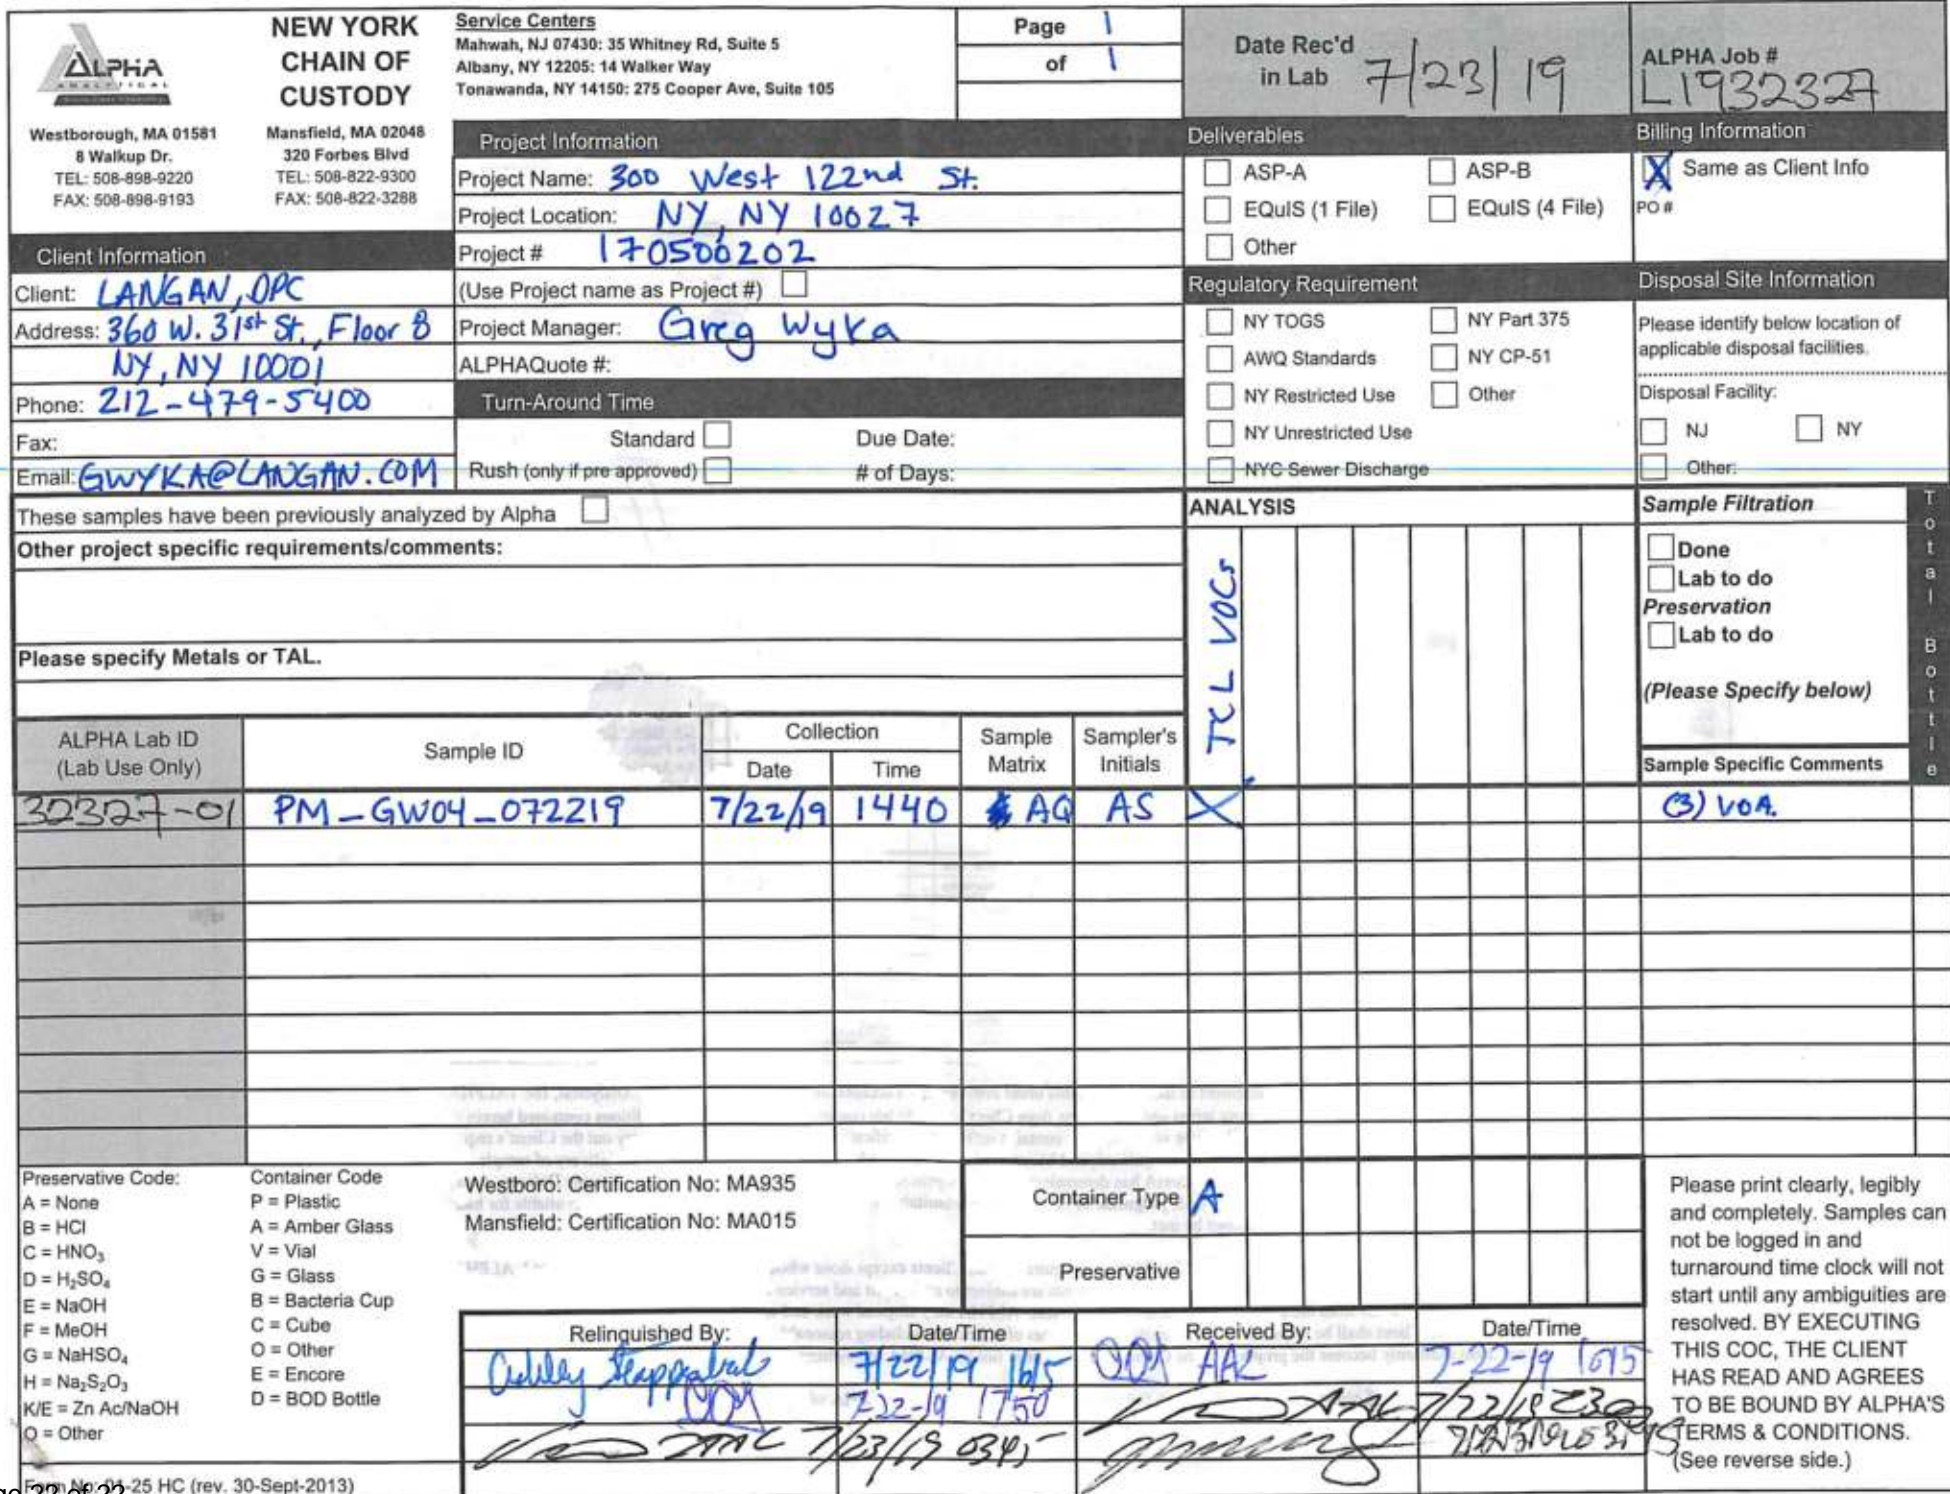 ALPHA
ANALYTICAL
NEW YORK
CHAIN OF
CUSTODY
Westborough, MA 01581
8 Walkup Dr.
TEL: 508-898-9220
FAX: 508-898-9193
Mansfield, MA 02048
320 Forbes Blvd
TEL: 508-822-9300
FAX: 508-822-3288
Service Centers
Mahwah, NJ 07430: 35 Whitney Rd, Suite 5
Albany, NY 12205: 14 Walker Way
Tonawanda, NY 14150: 275 Cooper Ave, Suite 105
Page 1
of 1
Date Rec'd
in Lab 7/23/19
ALPHA Job #
L1932327
Client Information
Client: LANGAN, DPC
Address: 360 W. 31st St., Floor 8
NY, NY 10001
Phone: 212-479-5400
Fax:
Email: GWYKA@LANGAN.COM
Project Information
Project Name: 300 West 122nd St.
Project Location: NY, NY 10027
Project # 170500202
(Use Project name as Project #)
Project Manager: Greg Wyka
ALPHAQuote #:
Turn-Around Time
Standard Due Date:
Rush (only if pre approved) # of Days:
Deliverables
ASP-A ASP-B
EQuIS (1 File) EQuIS (4 File)
Other
Regulatory Requirement
NY TOGS NY Part 375
AWQ Standards NY CP-51
NY Restricted Use Other
NY Unrestricted Use
NYC Sewer Discharge
Billing Information
X Same as Client Info
PO #
Disposal Site Information
Please identify below location of
applicable disposal facilities.
Disposal Facility:
NJ NY
Other:
These samples have been previously analyzed by Alpha
Other project specific requirements/comments:
Please specify Metals or TAL.
ANALYSIS
TCL VOCs
Sample Filtration
Done
Lab to do
Preservation
Lab to do
(Please Specify below)
Total Bottle
ALPHA Lab ID
(Lab Use Only)
Sample ID
Collection
Date Time
Sample
Matrix
Sampler's
Initials
Sample Specific Comments
32327-01 PM_GW04_072219 7/22/19 1440 AQ AS X (3) VOA.
Preservative Code:
A = None
B = HCl
C = HNO₃
D = H₂SO₄
E = NaOH
F = MeOH
G = NaHSO₄
H = Na₂S₂O₃
K/E = Zn Ac/NaOH
O = Other
Container Code
P = Plastic
A = Amber Glass
V = Vial
G = Glass
B = Bacteria Cup
C = Cube
O = Other
E = Encore
D = BOD Bottle
Westboro: Certification No: MA935
Mansfield: Certification No: MA015
Container Type A
Preservative
Relinquished By: Date/Time Received By: Date/Time
7/22/19 1615 AAL 7-22-19 1615
7-22-19 1750 AAL 7/22/19 2300
AAL 7/23/19 0345
Please print clearly, legibly
and completely. Samples can
not be logged in and
turnaround time clock will not
start until any ambiguities are
resolved. BY EXECUTING
THIS COC, THE CLIENT
HAS READ AND AGREES
TO BE BOUND BY ALPHA'S
TERMS & CONDITIONS.
(See reverse side.)
Form No: 01-25 HC (rev. 30-Sept-2013)